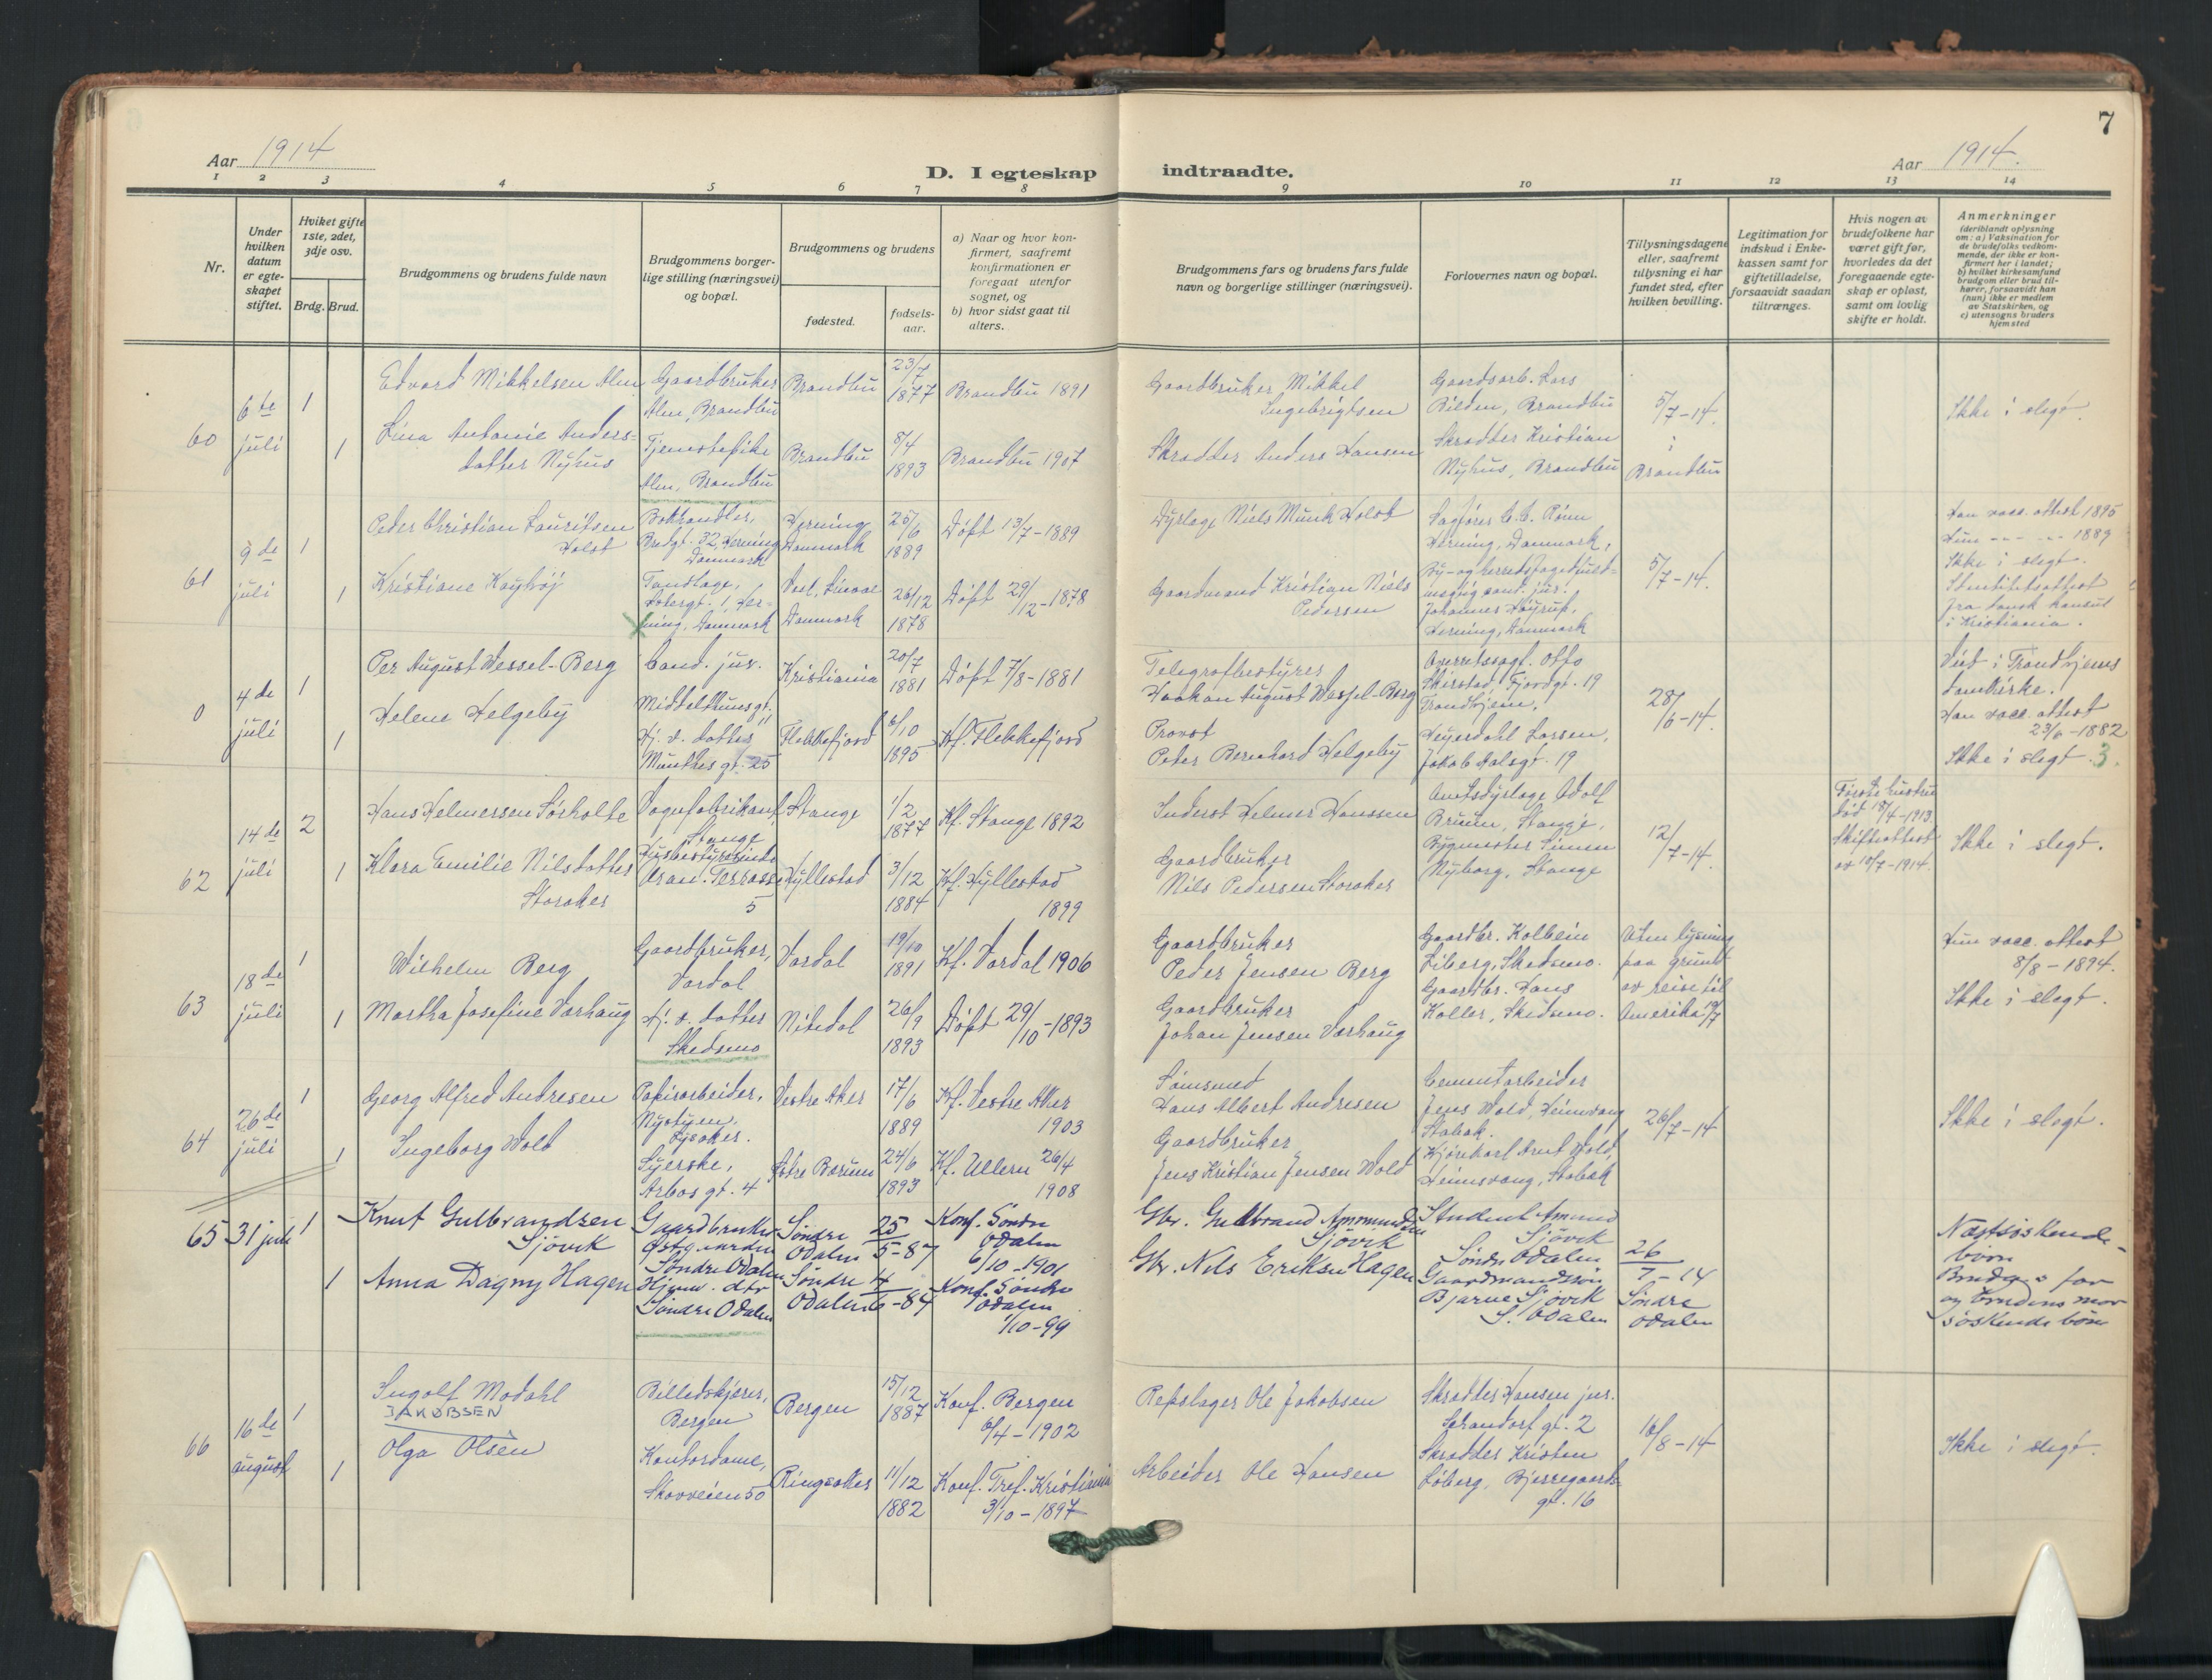 7
Aar 1914
D. I egteskap indtraadte.
Aar 1914.
1 2 3 4 5 6 7 8 9 10 11 12 13 14
Nr.
Under
hvilken
datum
er egte-
skapet
stiftet.
Hviket gifte
1ste, 2det,
3dje osv.
Brdg. Brud.
Brudgommens og brudens fulde navn
Brudgommens borger-
lige stilling (næringsvei)
og bopæl.
Brudgommens og brudens
fødested.
fødsels-
aar.
a) Naar og hvor kon-
firmert, saafremt
konfirmationen er
foregaat utenfor
sognet, og
b) hvor sidst gaat til
alters.
Brudgommens fars og brudens fars fulde
navn og borgerlige stillinger (næringsvei).
Forlovernes navn og bopæl.
Tillysningsdagene
eller, saafremt
tillysning ei har
fundet sted, efter
hvilken bevilling.
Legitimation for
indskud i Enke-
kassen samt for
giftetilladelse,
forsaavidt saadan
tiltrænges.
Hvis nogen av
brudefolkene har
været gift før,
hvorledes da det
foregaaende egte-
skap er opløst,
samt om lovlig
skifte er holdt.
Anmerkninger
(deriblandt oplysning
om: a) Vaksination for
de brudefolks vedkom-
mende, der ikke er kon-
firmert her i landet;
b) hvilket kirkesamfund
brudgom eller brud til-
hører, forsaavidt han
(hun) ikke er medlem
av Statskirken, og
c) utensogns bruders
hjemsted
60
6te
juli
1
1
Edvard Mikkelsen Alm
Lina Antonie Anders=
datter Nyhus
Gaardbruker
Alm, Brandbu
Tjenestepike
Alm, Brandbu
Brandbu
Brandbu
23/7
1877
8/4
1893
Brandbu 1891
Brandbu 1907
Gaardbruker Mikkel
Ingebrigtsen
Skrædder Anders Hansen
Gaardsarb. Lars
Bilden, Brandbu
Skrædder Kristian
Nyhus, Brandbu
5/7-14.
i
Brandbu
Ikke i slegt.
61
9de
juli
1
1
Peder Christian Lauritsen
Holst
Kristiane Haybøj
Bokhandler,
Bredgt. 32, Herning
Danmark
Tandlæge,
1, Her=
ning, Danmark
Herning
Danmark
Danmark
25/6
1889
26/12
1878
Døpt 13/7-1889
Døpt 29/12-1878
Dyrlæge Niels Munk Holst
Gaardmand Kristian Niels
Pedersen
Sagfører C.C. Rönn
Herning, Danmark,
By- og herredsfogedfuld-
mægtig cand. jur.
Johannes Höyrup,
Herning, Danmark
5/7-14.
Han vacc. attest 1895
Hun --- 1889
Ikke i slegt.
Identitetsattest
fra dansk konsul
i Kristiania.
0
4de
juli
1
1
Per August Wessel-Berg
Helene Helgeby
Cand. jur.
Middelthunsgt.
Hj. v. datter
Munthesgt. 25
Kristiania
Flekkefjord
20/7
1881
6/10
1895
Døpt 7/8-1881
Kf. Flekkefjord
Telegrafbestyrer
Haakon August Wessel-Berg
Provst
Peter Bernhard Helgeby
Overretssagf. Otto
Skirstad, Fjordgt. 19
Trondhjem,
Heyerdahl Larsen,
Jakob Aalsgt. 19
28/6-14.
Viet i Trondhjems
domkirke.
Han vacc. attest
23/6-1882
Ikke i slegt. 3.
62
14de
juli
2
1
Hans Helmersen Sørholte
Klara Emilie Nilsdatter
Storaker
Vognfabrikant
Stange
Husbestyrerinde
Uran. Terrasse
5
Stange
Hyllestad
1/2
1877
3/12
1884
Kf. Stange 1892
Kf. Hyllestad
1899
Inderst Helmer Hanssen
Gaardbruker
Nils Pedersen Storaker
Amtsdyrlæge Adolf
Bruun, Stange,
Bygmester Simen
Nyborg, Stange
12/7-14.
Første hustru
død 18/4-1913
Skifteattest
av 10/7-1914.
Ikke i slegt.
63
18de
juli
1
1
Wilhelm Berg
Martha Josefine Varhaug
Gaardbruker,
Vardal
Hj. v. datter
Skedsmo
Vardal
Nitedal
19/10
1891
26/9
1893
Kf. Vardal 1906
Døpt 29/10-1893
Gaardbruker
Peder Jensen Berg
Gaardbruker
Johan Jensen Varhaug
Gaardbr. Kolbein
Liberg, Skedsmo.
Gaardbr. Hans
Koller, Skedsmo.
Uten lysning
paa grund
av reise til
Amerika 18/7
Hun vacc. attest
8/8-1894.
Ikke i slegt.
64
26de
juli
1
1
Georg Alfred Andresen
Ingeborg Wold
Papirarbeider,
Nystyen,
Lysaker.
Syerske,
Arbosgt. 4
Vestre Aker
Østre Bærum
17/6
1889
24/6
1893
Kf. Vestre Aker
1903
Kf. Ullern 26/4
1908
Sømsmed
Hans Albert Andresen
Gaardbruker
Jens Kristian Jensen Wold
Cementarbeider
Jens Wold, Heimvang
Stabæk.
Kjørekarl Arnt Wold,
Heimvang, Stabæk
26/7-14
Ikke i slegt.
65
31 juli
1
1
Knut Gulbrandsen
Sjøvik
Anna Dagny Hagen
Gaardbruker
Østgaarden
Søndre Odalen
Hjemv. dtr
Søndre Odalen
Søndre
Odalen
Søndre
Odalen
25
5-87
4
6-84
Konf. Søndre
Odalen
6/10-1901
Konf. Søndre
Odalen
1/10-99
Gbr. Gulbrand Ammundsen
Sjøvik
Gbr. Nils Eriksen Hagen
Student Amund
Sjøvik
Søndre Odalen
Gaardmandssøn
Bjarne Sjøvik
S. Odalen
26
7-14
Søndre
Odalen
Næstsøskende-
børn
Brudg.s far
og brudens mor
søskendebørn
66
16de
august
1
1
Ingolf Modahl
JAKOBSEN
Olga Olsen
Billedskjærer,
Bergen
Kontordame,
Skovveien 50
Bergen
Ringsaker
15/12
1887
11/12
1882
Konf. Bergen
6/4-1902
Konf. Tref. Kristiania
3/10-1897
Repslager Ole Jakobsen
Arbeider Ole Hansen
Skrædder Hansen jur.
gt. 2
Skrædder Kristen
Løberg, Bjerregaards-
gt. 16
16/8-14
Ikke i slegt.